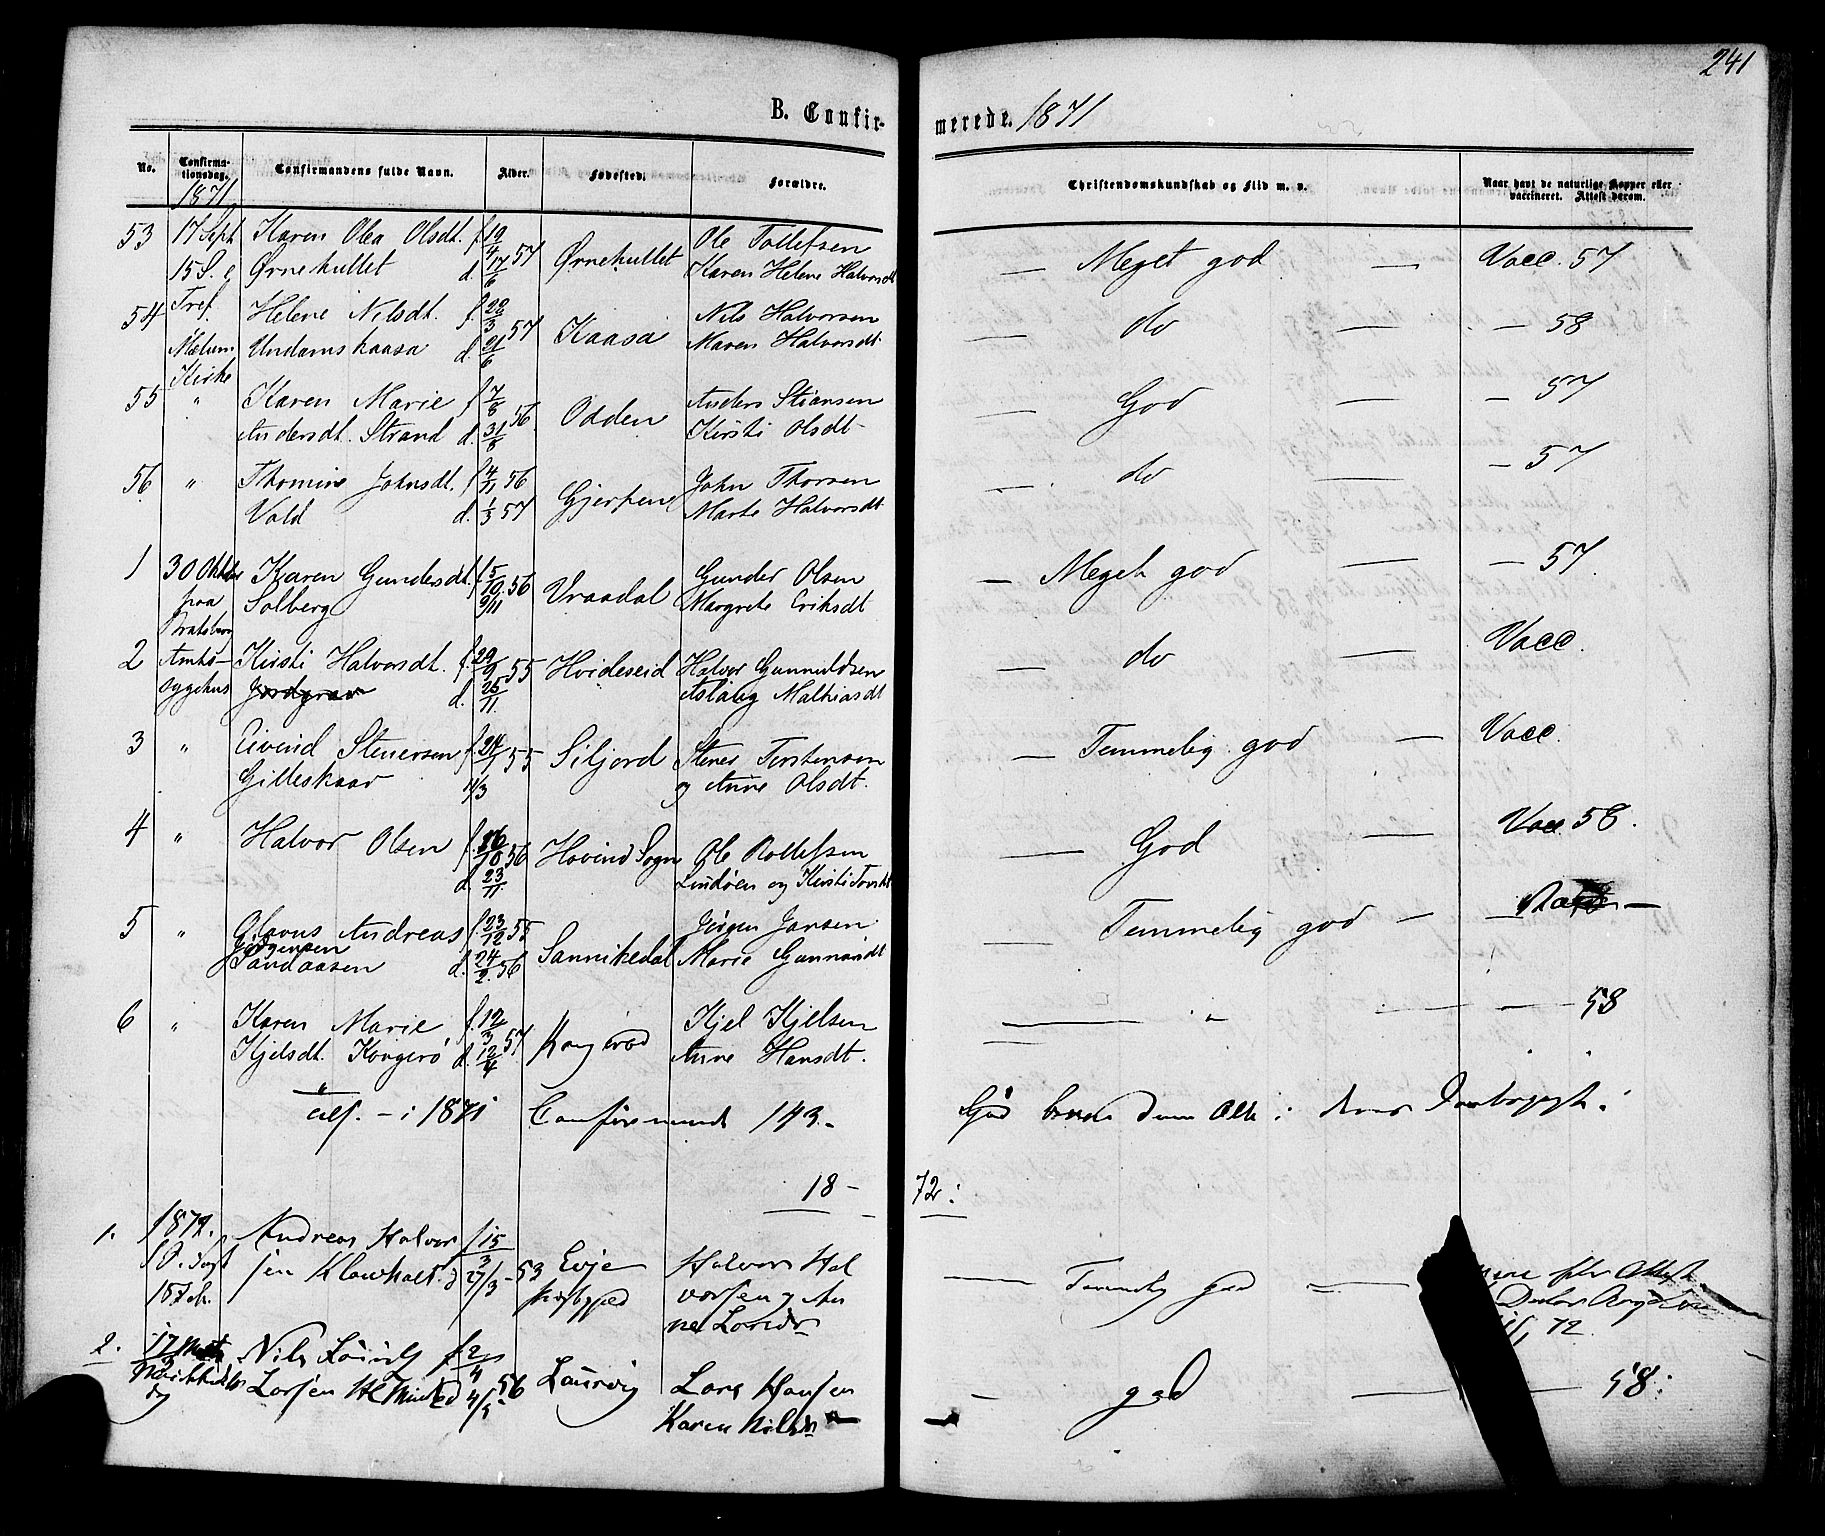 241
B. Confirmerede. 1871
No. Confirmationsdag. Confirmandens fulde Navn. Alder. Fødested. Forældre. Christendomskundskab og Flid m. v. Naar havt de naturlige Kopper eller vaccineret. Attest derom.
1871
53 17 Sept Karen Olea Olsdt. f 19/4 57 Ørnekullet Ole Tollefsen — Meget god — Vacc. 57
15 S. e Ørnekullet d. 17/6 Karen Helene Halvorsdt
Tref.
54 Helene Nilsdt. f. 22/3 57 Kaasa Nils Halvorsen — do — — 58
Mælum Undamskaasa d. 21/6 Maren Halvorsdt.
Kirke
55 " Karen Marie f 7/8 56 Odden Anders Stiansen — God — — 57
Andersdt. Strand d. 31/8 Kirsti Olsdt
56 " Thomine Johnsdt. f 4/11 56 Gjerpen John Thorsen — do — — 57
Vold d. 1/3 57 Marte Halvorsdt
1 30 Oktober Karen Gundersdt. f. 5/10 56 Vraadal Gunder Olsen — Meget god — — 57.
paa Solberg 9/11 Margrete Eriksdt
Bratsberg
2 Amts- Kirsti Halvorsdt. f. 29/9 55 Hvideseid Halvor Gunnuldsen — do — Vacc.
sygehus d. 25/11 Aslaug Mathiasdt
3 " Eivind Stenersen f. 24/1 55 Siljord Stener Torstensen — Temmelig god — Vacc.
Gilleskaar 11/3 og Anne Olsdt.
4 " Halvor Olsen f. 16/10 56 Hovind Sogn Ole Rollefsen — God — Vacc 58.
d. 23/11 Lindøen og Kirsti
5 " Olavus Andreas f. 23/12 55 Sannikedal Jørgen Jansen — Temmelig god —
Jørgensen
Sandaasen d. 24/2 56 Marie
6 " Karen Marie f. 12/3 57 Kongerød Kjel Kjelsen — " — — 58
Kjelsdt. Kongerø d. 12/4 Anne Hansdt.
"
alf. — i 1871 Confirmerende 143.- Gud bevare dem Alle i deres
18 - 72:
1. 1872. Andreas Halvor f 15/3 53 Evje Halvor Hal — Temmelig god —
sen d 27/3 vorsen og An
ne 72.
2. 17 Nils f 2/4 56 Laurvig Lars Hansen — god — — 58:
Larsen 4/5 Karen